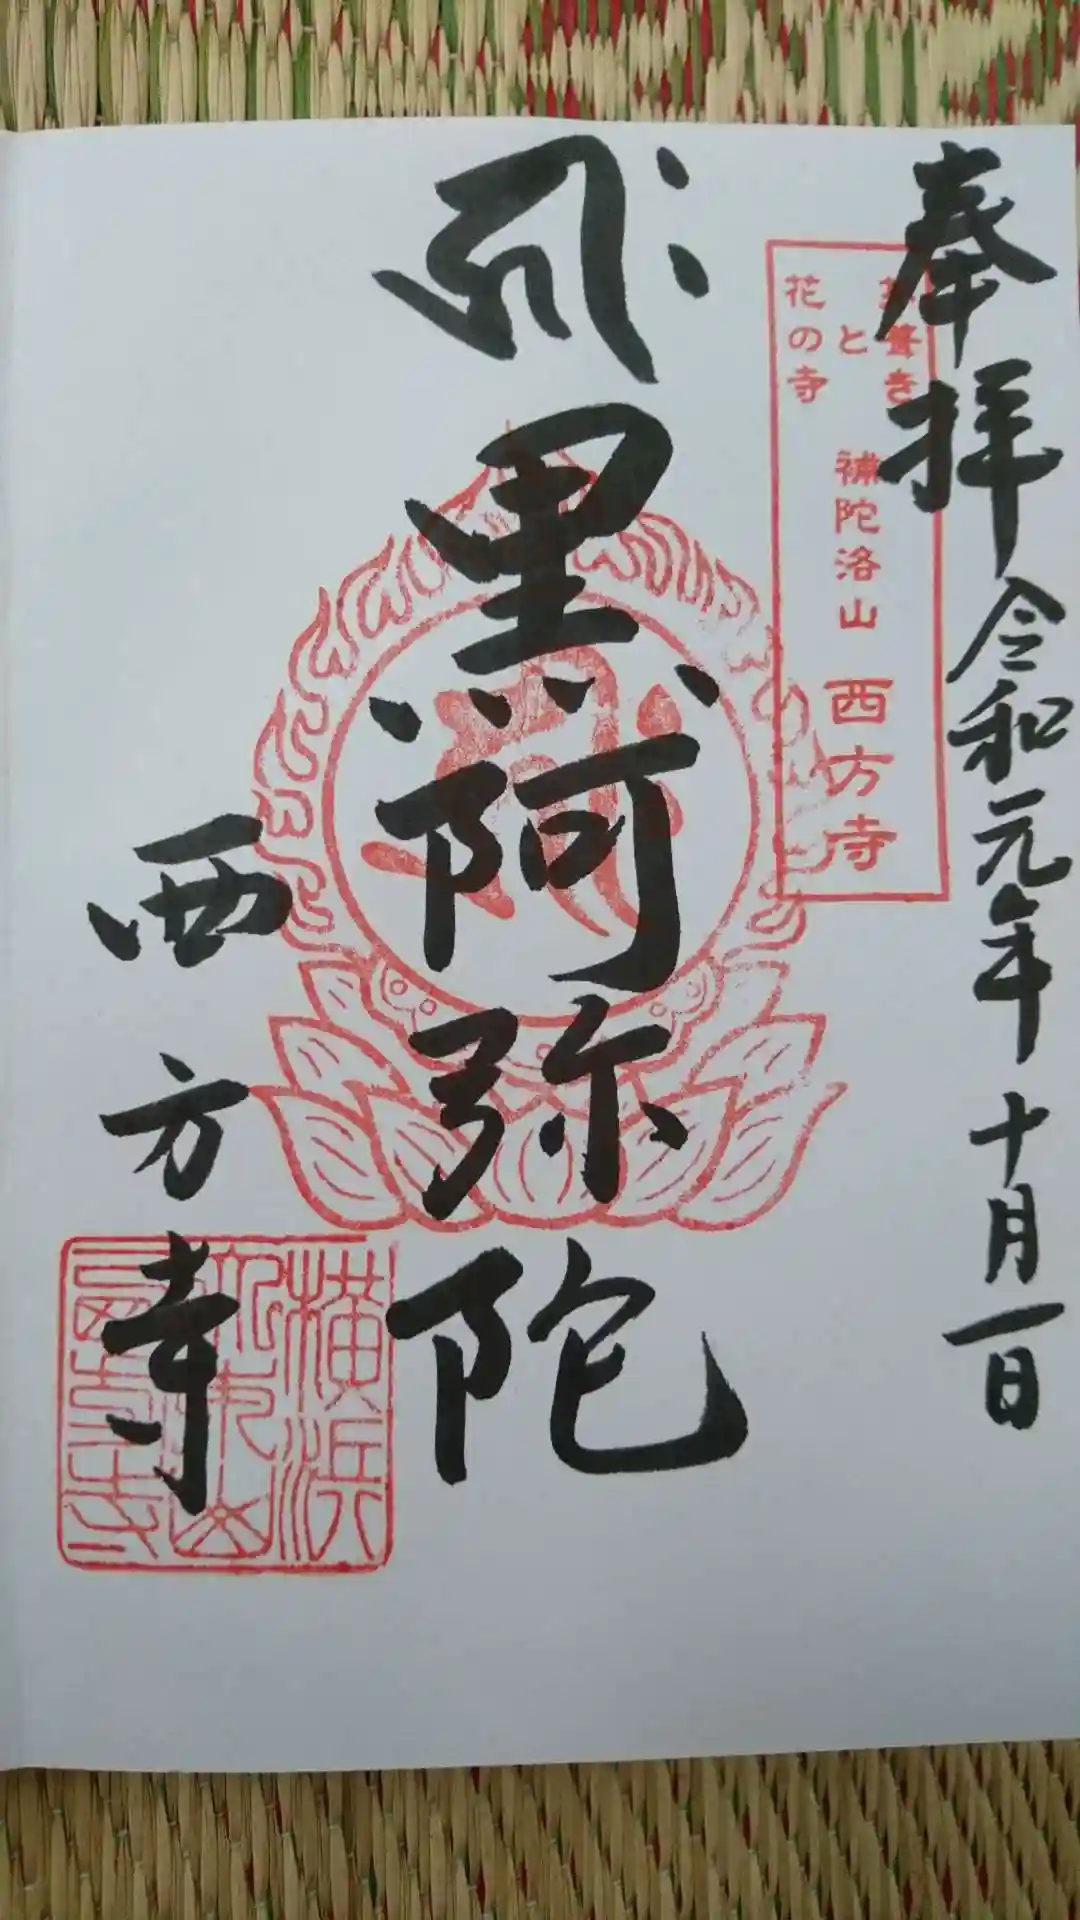 奉拝
令和元年十月一日
葺き
と
花の寺
補陀洛山 西方寺
黒阿弥陀
西方寺
横浜